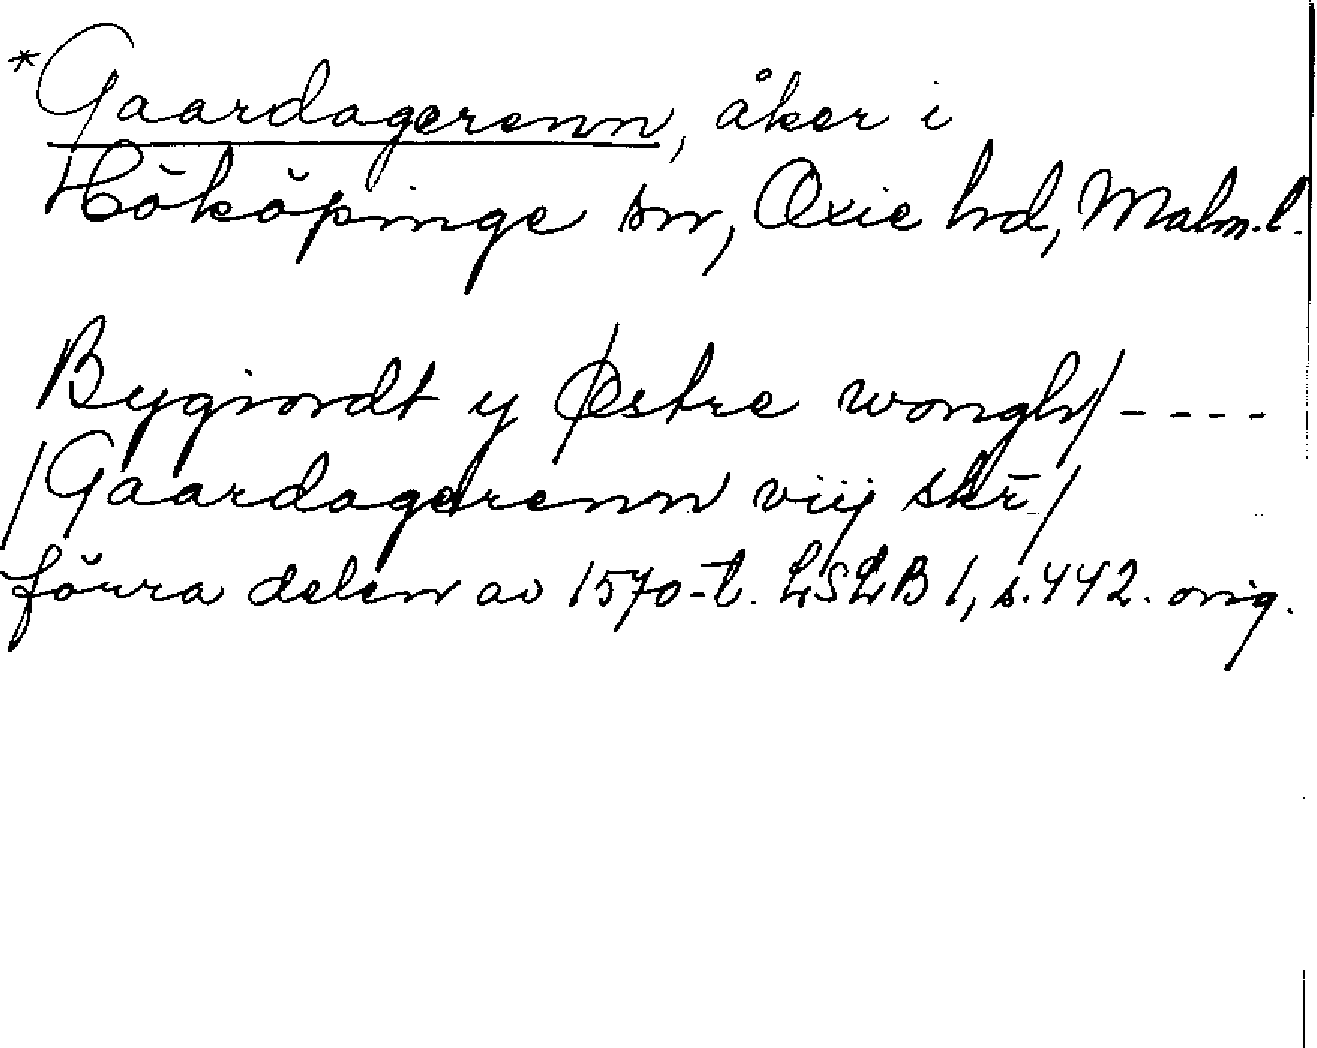 *Gaardagerenn, åker i
Hököpinge sn, Oxie hd, Malm.l.
Bygiordt y Østre wongh/ ----
/Gaardagerenn viij skr̄/
förra delen av 1570-t. LSLB 1, s. 442. orig.